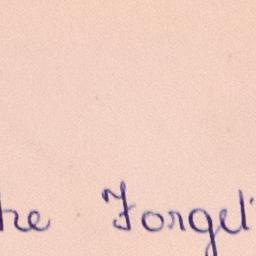 he Forget